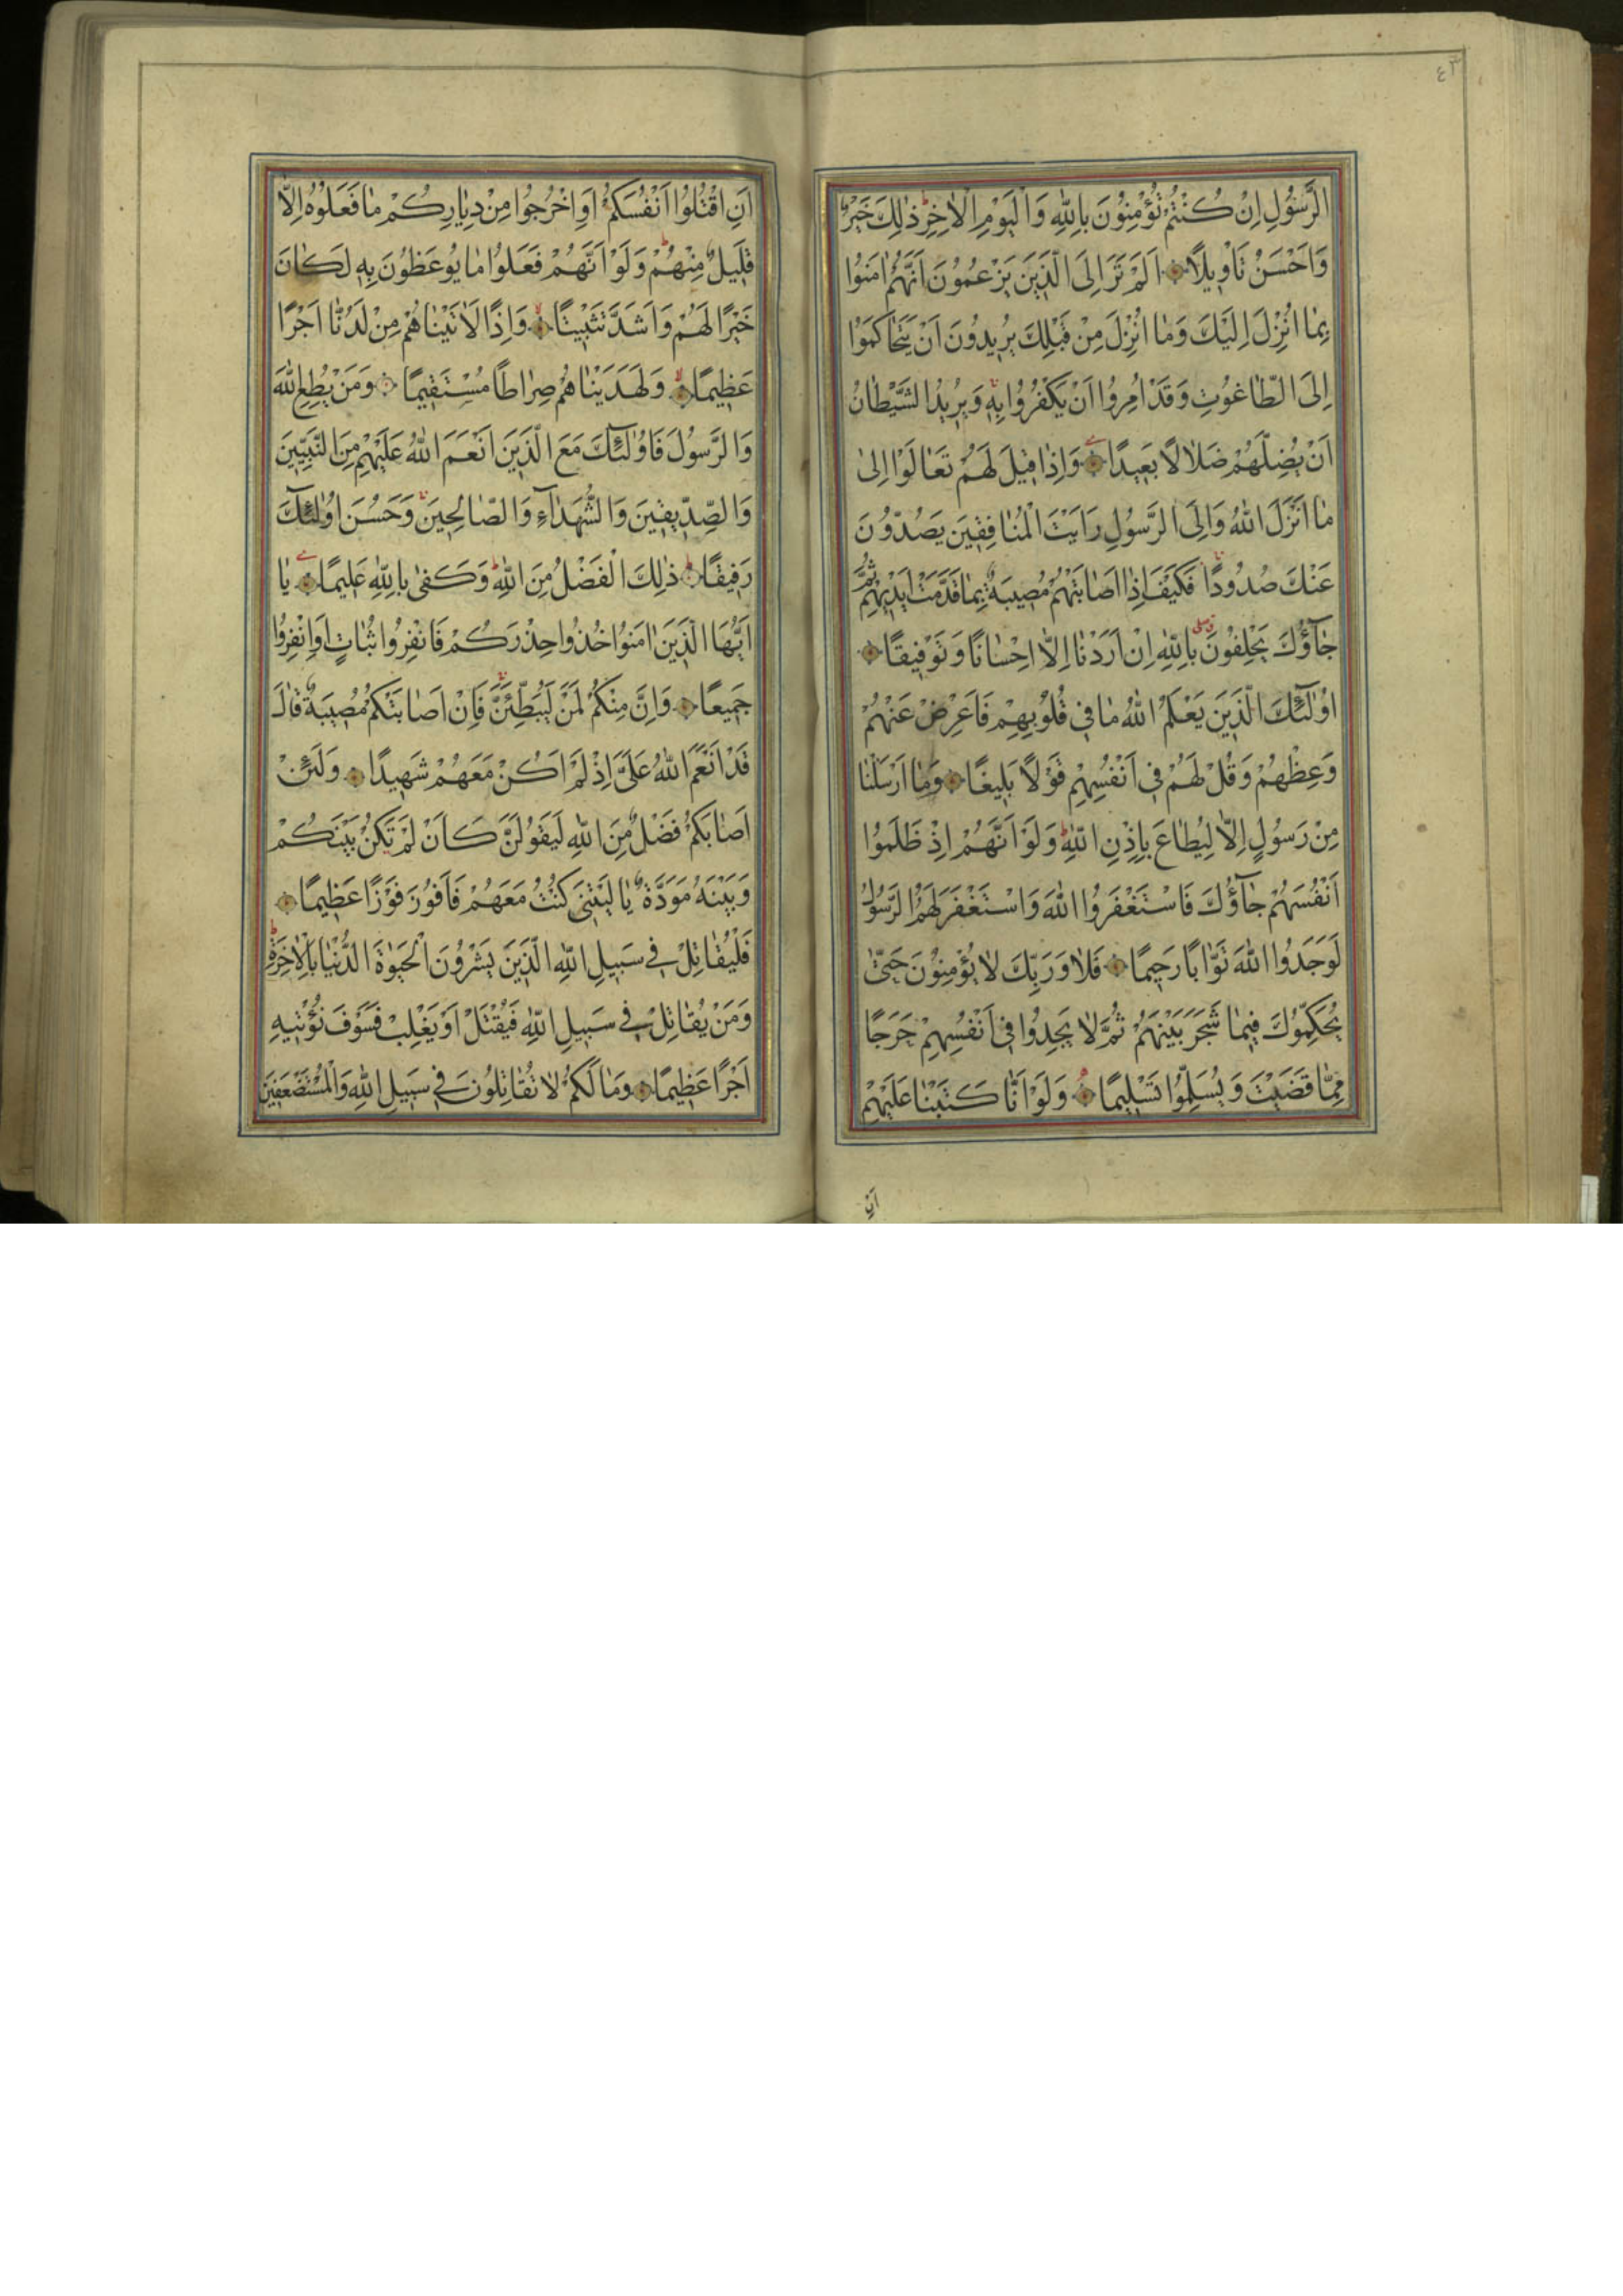 ٤٣
الرَّسُولِ اِنْ كُنْتُمْ تُؤْمِنُونَ بِاللّٰهِ وَالْيَوْمِ الْاٰخِرِ ذٰلِكَ خَيْرٌ
وَاَحْسَنُ تَاْوِيلًا اَلَمْ تَرَ اِلَى الَّذِينَ يَزْعُمُونَ اَنَّهُمْ اٰمَنُوا
بِمٰا اُنْزِلَ اِلَيْكَ وَمٰا اُنْزِلَ مِنْ قَبْلِكَ يُرِيدُونَ اَنْ يَتَحٰاكَمُوا
اِلَى الطّٰاغُوتِ وَقَدْ اُمِرُوا اَنْ يَكْفُرُوا بِهِ وَيُرِيدُ الشَّيْطٰانُ
اَنْ يُضِلَّهُمْ ضَلٰالًا بَعِيدًا وَاِذٰا قِيلَ لَهُمْ تَعٰالَوْا اِلىٰ
مٰا اَنْزَلَ اللّٰهُ وَاِلَى الرَّسُولِ رَاَيْتَ الْمُنٰافِقِينَ يَصُدُّونَ
عَنْكَ صُدُودًا فَكَيْفَ اِذٰا اَصٰابَتْهُمْ مُصِيبَةٌ بِمٰا قَدَّمَتْ اَيْدِيهِمْ ثُمَّ
جٰٓاؤُكَ يَحْلِفُونَ بِاللّٰهِ اِنْ اَرَدْنٰا اِلّٰا اِحْسٰانًا وَتَوْفِيقًا
اُولٰٓئِكَ الَّذِينَ يَعْلَمُ اللّٰهُ مٰا فِي قُلُوبِهِمْ فَاَعْرِضْ عَنْهُمْ
وَعِظْهُمْ وَقُلْ لَهُمْ فِي اَنْفُسِهِمْ قَوْلًا بَلِيغًا وَمٰا اَرْسَلْنٰا
مِنْ رَسُولٍ اِلّٰا لِيُطٰاعَ بِاِذْنِ اللّٰهِ وَلَوْ اَنَّهُمْ اِذْ ظَلَمُوا
اَنْفُسَهُمْ جٰٓاؤُكَ فَاسْتَغْفَرُوا اللّٰهَ وَاسْتَغْفَرَ لَهُمُ الرَّسُولُ
لَوَجَدُوا اللّٰهَ تَوّٰابًا رَحِيمًا فَلٰا وَرَبِّكَ لٰا يُؤْمِنُونَ حَتّٰى
يُحَكِّمُوكَ فِيمٰا شَجَرَ بَيْنَهُمْ ثُمَّ لٰا يَجِدُوا فِي اَنْفُسِهِمْ حَرَجًا
مِمّٰا قَضَيْتَ وَيُسَلِّمُوا تَسْلِيمًا وَلَوْ اَنّٰا كَتَبْنٰا عَلَيْهِمْ
اَنِ
اَنِ اقْتُلُوا اَنْفُسَكُمْ اَوِ اخْرُجُوا مِنْ دِيٰارِكُمْ مٰا فَعَلُوهُ اِلّٰا
قَلِيلٌ مِنْهُمْ وَلَوْ اَنَّهُمْ فَعَلُوا مٰا يُوعَظُونَ بِهِ لَكٰانَ
خَيْرًا لَهُمْ وَاَشَدَّ تَثْبِيتًا وَاِذًا لَاٰتَيْنٰاهُمْ مِنْ لَدُنّٰا اَجْرًا
عَظِيمًا وَلَهَدَيْنٰاهُمْ صِرٰاطًا مُسْتَقِيمًا وَمَنْ يُطِعِ اللّٰهَ
وَالرَّسُولَ فَاُولٰٓئِكَ مَعَ الَّذِينَ اَنْعَمَ اللّٰهُ عَلَيْهِمْ مِنَ النَّبِيِّينَ
وَالصِّدِّيقِينَ وَالشُّهَدٰٓاءِ وَالصّٰالِحِينَ وَحَسُنَ اُولٰٓئِكَ
رَفِيقًا ذٰلِكَ الْفَضْلُ مِنَ اللّٰهِ وَكَفىٰ بِاللّٰهِ عَلِيمًا يٰا
اَيُّهَا الَّذِينَ اٰمَنُوا خُذُوا حِذْرَكُمْ فَانْفِرُوا ثُبٰاتٍ اَوِ انْفِرُوا
جَمِيعًا وَاِنَّ مِنْكُمْ لَمَنْ لَيُبَطِّئَنَّ فَاِنْ اَصٰابَتْكُمْ مُصِيبَةٌ قٰالَ
قَدْ اَنْعَمَ اللّٰهُ عَلَيَّ اِذْ لَمْ اَكُنْ مَعَهُمْ شَهِيدًا وَلَئِنْ
اَصٰابَكُمْ فَضْلٌ مِنَ اللّٰهِ لَيَقُولَنَّ كَاَنْ لَمْ تَكُنْ بَيْنَكُمْ
وَبَيْنَهُ مَوَدَّةٌ يٰا لَيْتَنِي كُنْتُ مَعَهُمْ فَاَفُوزَ فَوْزًا عَظِيمًا
فَلْيُقٰاتِلْ فِي سَبِيلِ اللّٰهِ الَّذِينَ يَشْرُونَ الْحَيٰوةَ الدُّنْيٰا بِالْاٰخِرَةِ
وَمَنْ يُقٰاتِلْ فِي سَبِيلِ اللّٰهِ فَيُقْتَلْ اَوْ يَغْلِبْ فَسَوْفَ نُؤْتِيهِ
اَجْرًا عَظِيمًا وَمٰا لَكُمْ لٰا تُقٰاتِلُونَ فِي سَبِيلِ اللّٰهِ وَالْمُسْتَضْعَفِينَ